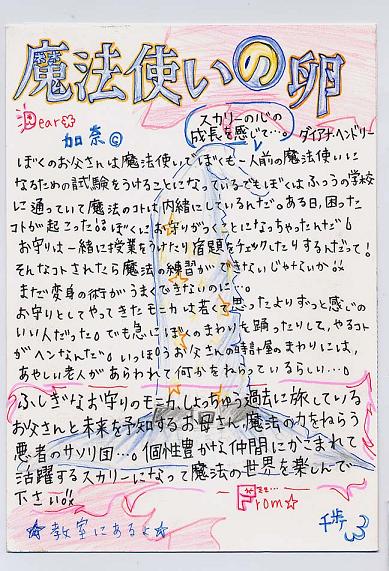 魔法使いの卵
Dear☆
加奈ⓒ
スカリーの心の
成長を感じて…。
ダイアナ・ヘンドリー
ぼくのお父さんは魔法使いでぼくも一人前の魔法使いに
なるための試験をうけることになっているでもぼくはふつうの学校
に通っていて魔法のコトは内緒にしているんだ。ある日、困った
コトが起こった!!ぼくにお守りがつくことになっちゃたんだ!
お守りは一緒に授業をうけたり宿題をチェックしたりするんだって!
そんなコトされたら魔法の練習ができないじゃないか!!
まだ変身の術がうまくできないのに…。
お守りとしてやってきたモニカは若くて思ったよりずっと感じの
いい人だった。でも急にぼくのまわりを踊ったりして、やるコト
がヘンなんだ。いっぽうお父さんの時計屋のまわりには、
あやしい老人があらわれて何かをねらっているらしい…。
ふしぎなお守りのモニカ、しょっちゅう過去に旅している
お父さんと未来を予知するお母さん、魔法の力をねらう
悪者のサソリ団…。個性豊かな仲間にかこまれて
活躍するスカリーになって魔法の世界を楽しんで
下さい!!
From☆
千歩
☆教室にあるよ☆